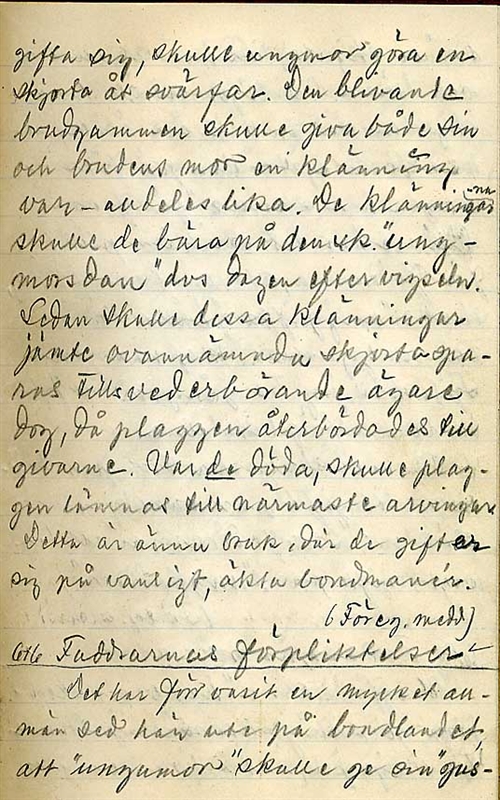 gifta sig, skulle ungmor göra en
skjorta åt svärfar. Den blivande
brudgammen skulle giva både sin
och brudens mor en klänning
var – alldeles lika. De klänningarna
skulle de bära på den sk. "ung-
morsdan" dvs dagen efter vigseln.
Sedan skulle dessa klänningar
jämte ovannämnda skjorta spa-
ras tills vederbörande ägare
dog, då plaggen återbördades till
givarne. Var de döda, skulle plag-
gen lämnas till närmaste arvingar.
Detta är ännu bruk, där de gifter
sig på vanligt, äkta bondmanér.
(Föreg. medd)
Faddrarnas förpliktelser
Det har förr varit en mycket all-
män sed här ute på bondlandet,
att "ungumor" skulle ge sin "gus-